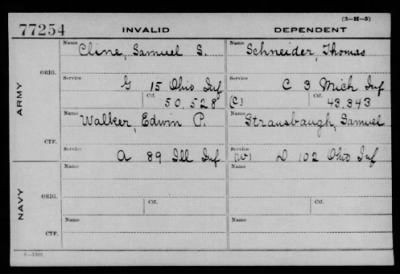 (3-H-3)
77254 INVALID DEPENDENT
Name Cline, Samuel S. Name Schneider, Thomas
ORIG. Service G 15 Ohio Inf Service C 3 Mich Inf
Ctf. 50,528 (C) Ctf. 43,343
ARMY
Name Walker, Edwin P. Name Stransbaugh, Samuel
CTF. Service A 89 Ill Inf Service (W) D 102 Ohio Inf
Name Name
NAVY
ORIG. Service Ctf. Service Ctf.
Name Name
CTF. Service Service